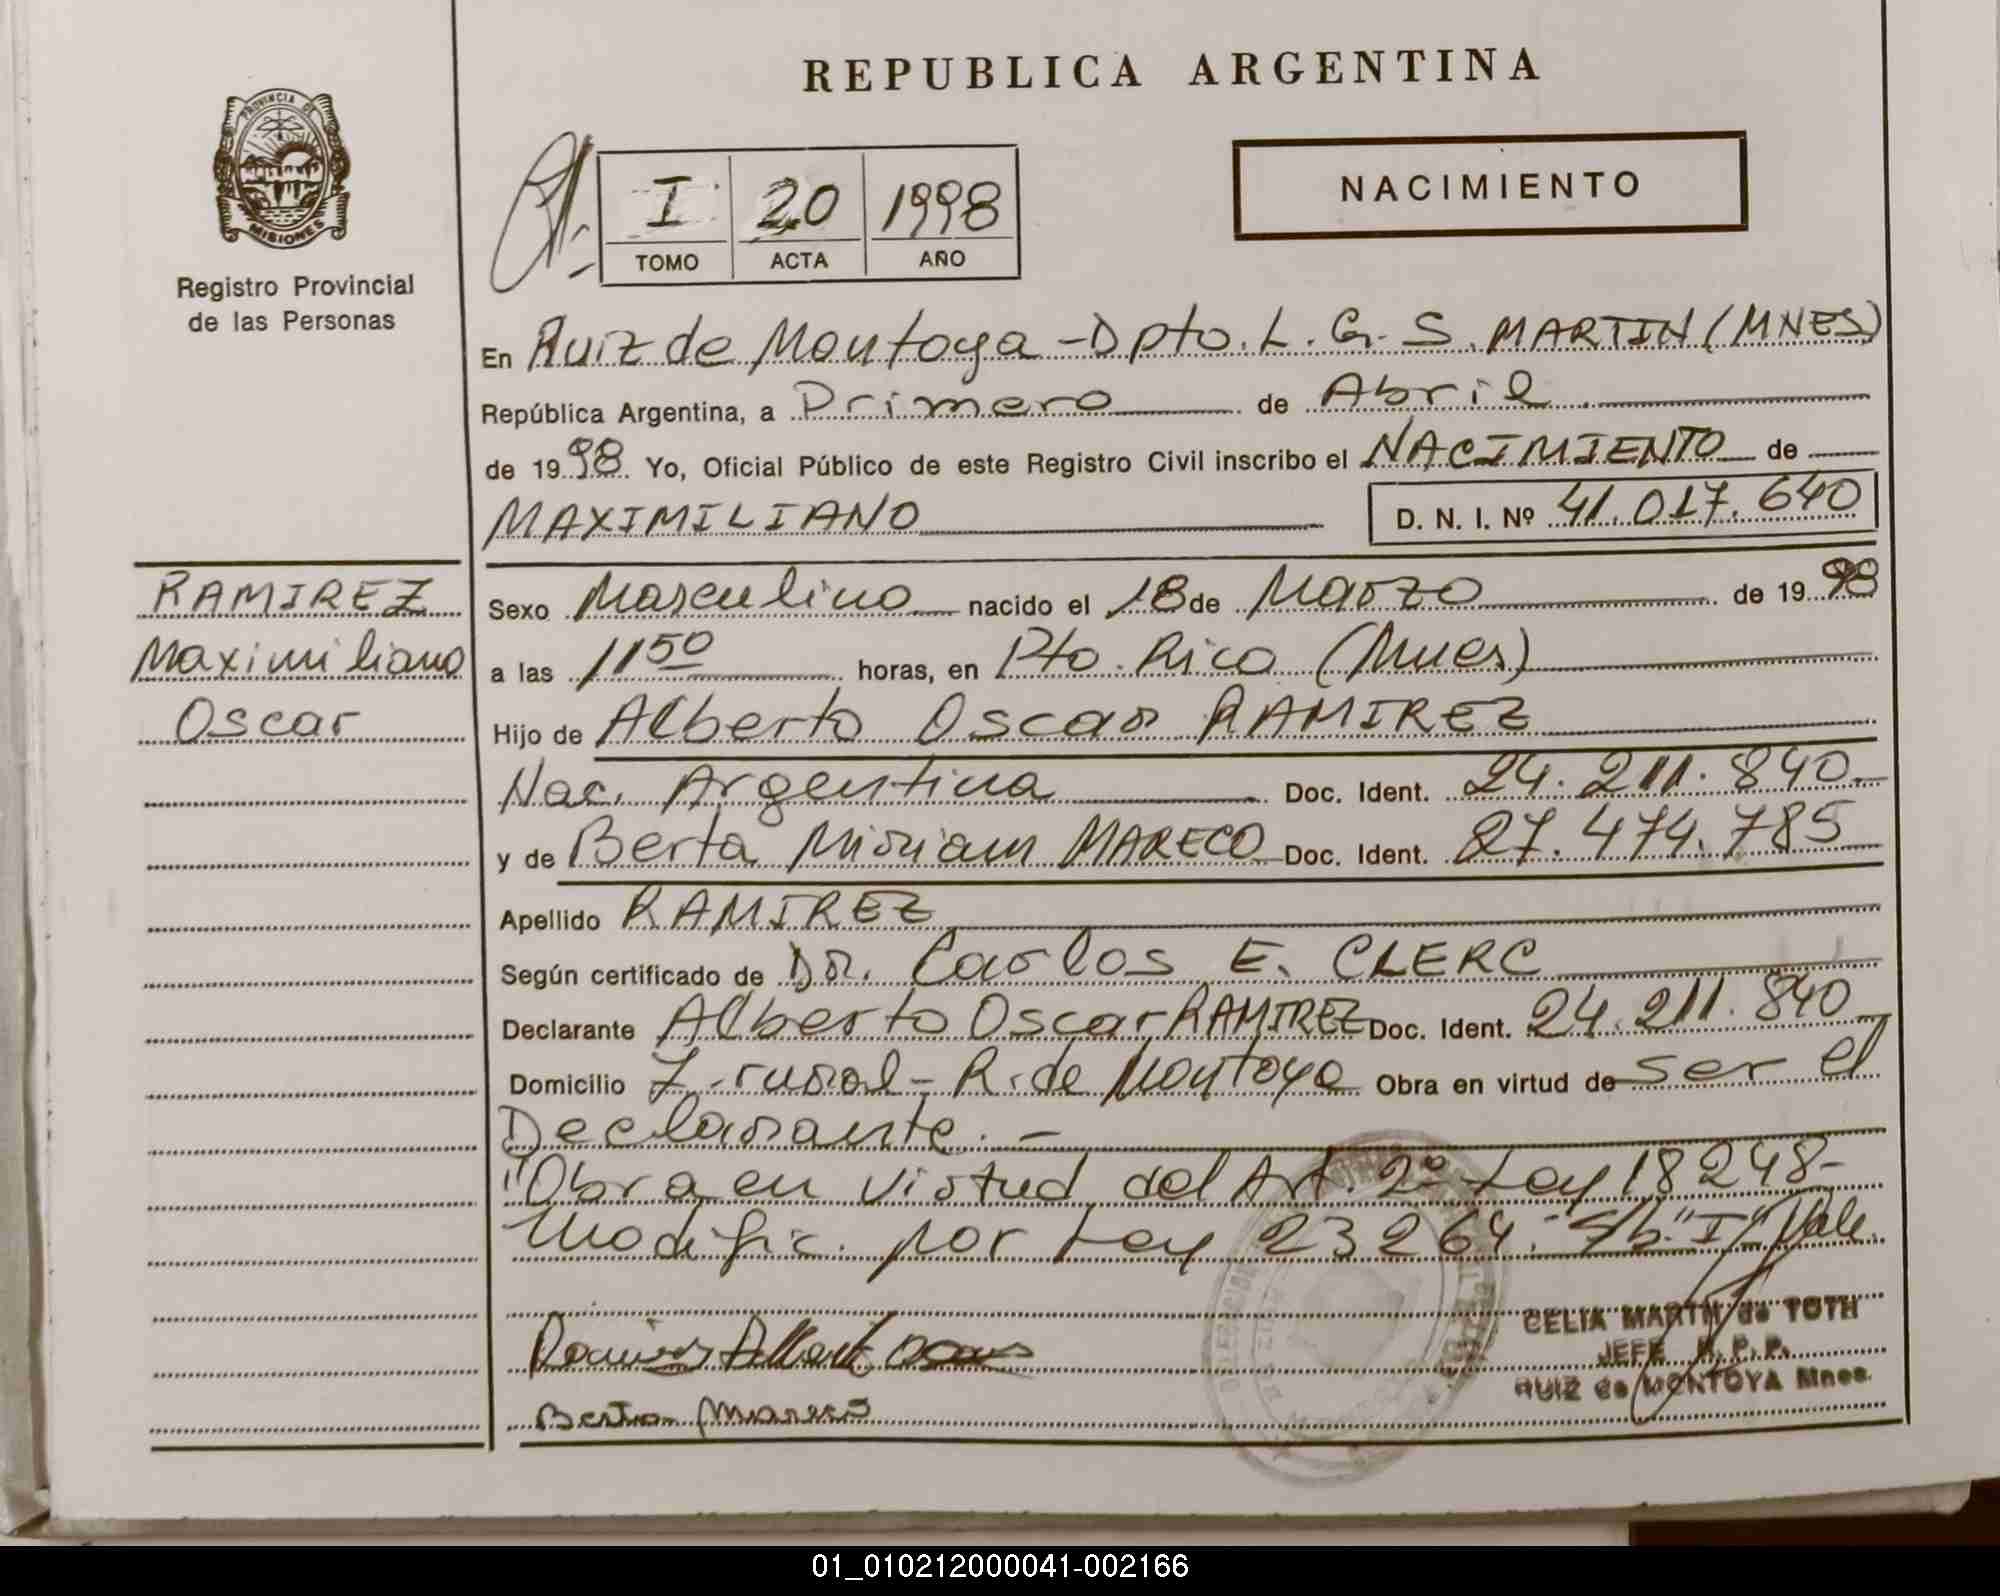 REPUBLICA ARGENTINA
PROVINCIA DE
MISIONES
Registro Provincial
de las Personas
I 20 1998
TOMO ACTA AÑO
NACIMIENTO
En Ruiz de Montoya - Dpto. L. G. S. MARTIN (MNES)
República Argentina, a Primero de Abril
de 1998. Yo, Oficial Público de este Registro Civil inscribo el NACIMIENTO de
MAXIMILIANO D. N. I. Nº 41.017.640
RAMIREZ
Maximiliano
Oscar
Sexo Masculino nacido el 18 de Marzo de 1998
a las 11 50 horas, en Pto. Rico (Mnes)
Hijo de Alberto Oscar RAMIREZ
Nac. Argentina Doc. Ident. 24.211.840
y de Berta Miriam MARECO Doc. Ident. 27.474.785
Apellido RAMIREZ
Según certificado de Dr. Carlos E. CLERC
Declarante Alberto Oscar RAMIREZ Doc. Ident. 24.211.840
Domicilio Z. rural - R. de Montoya Obra en virtud de ser el
Declarante. -
"Obra en virtud del Art. 2º Ley 18248-
Modific. por Ley 23264." S/b. "I" Vale.
CELIA MARTIN de TOTH
JEFE R. P. P.
RUIZ de MONTOYA Mnes.
Ramirez Alberto Oscar
Berta Mareco
01_010212000041-002166